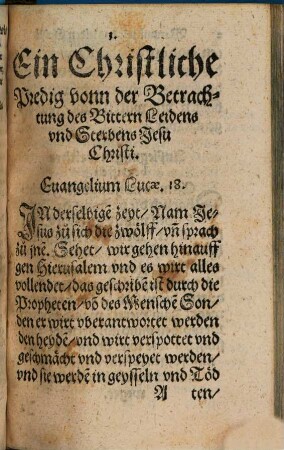 1.
Ein Christliche
Predig vonn der Betrach-
tung des Bittern Leidens
vnd Sterbens Jesu
Christi.
Euangelium Lucæ. 18.
IN derselbigē zeyt/ Nam Je-
sus zů sich die zwölff/ vñ sprach
zů jnē. Sehet/ wir gehen hinauff
gen Hierusalem vnd es wirt alles
vollendet/ das geschribē ist durch die
Propheten/ vō des Menschē Son/
den er wirt vberantwortet werden
den heydē/ vnd wirt verspottet vnd
geschmächt vnd verspeyet werden/
vnd sie werdē in geysseln vnd Töd
A ten/